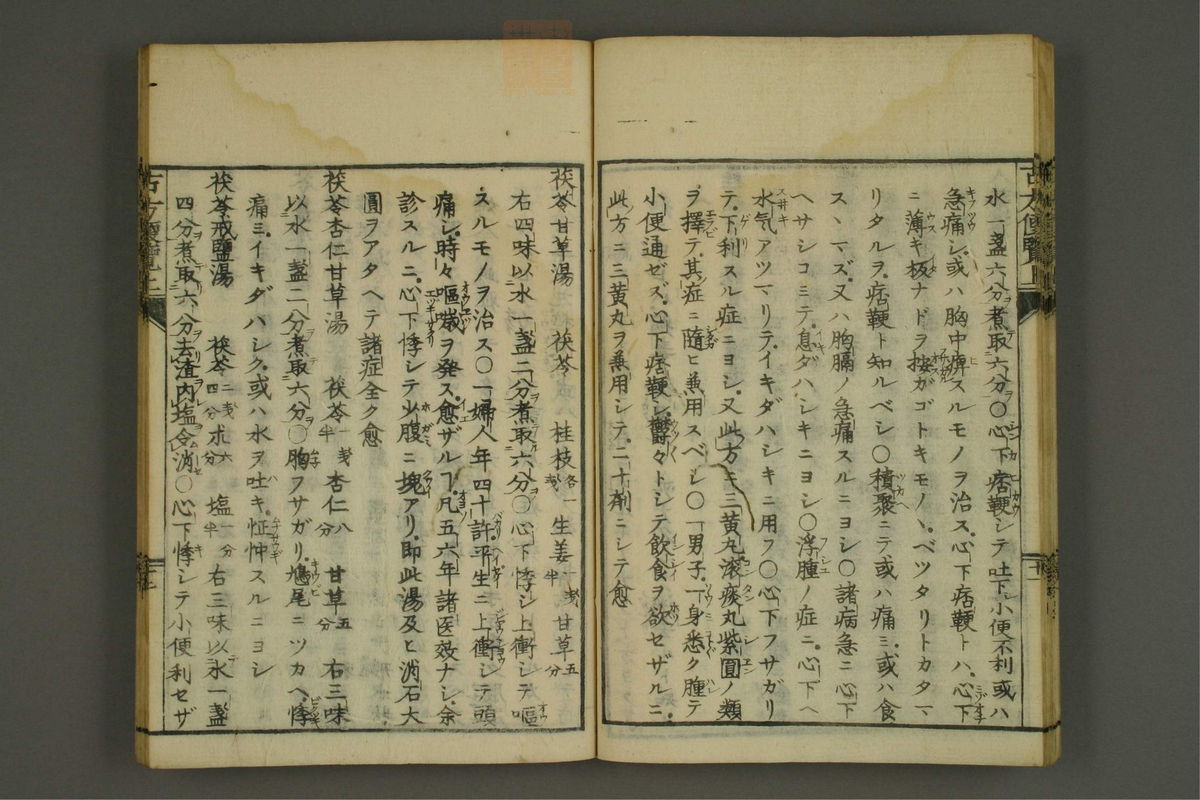 水一盞六分煮取六分〇心下痞鞕シテ吐下シ小便不利或ハ
急痛シ或ハ胸中痺スルモノヲ治ス心下痞鞕トハ心下
ニ薄キ板ナドヲ按ガゴトキモノヽベツタリトカタマ
リタルヲ痞鞕ト知ルベシ〇積聚ニテ或ハ痛ミ或ハ食
スヽマズ又ハ胸膈ノ急痛スルニヨシ〇諸病急ニ心下
ヘサシコミテ息ダハシキニヨシ〇浮腫ノ症ニ心下ヘ
水気アツマリテイキダハシキニ用フ〇心下フサガリ
テ下利スル症ニヨシ又此方キ三黄丸滚痰丸紫圓ノ類
ヲ擇テ其症ニ隨ヒ兼用スベシ〇一男子一身悉ク腫テ
小便通ゼズ心下痞鞕シ鬱々トシテ飲食ヲ欲セザルニ
此方ニ三黄丸ヲ兼用シテ二十劑ニシテ愈
茯苓甘草湯 茯苓 桂枝各一戔 生姜一戔半 甘草五分
右四味以水一盞二分煮取六分〇心下悸シ上衝シテ嘔
スルモノヲ治ス〇一婦人年四十許平生ニ上衝シテ頭
痛シ時々嘔噦ヲ発ス愈ザルヿ凡五六年諸医效ナシ余
診スルニ心下悸シテ少腹ニ塊アリ即此湯及ヒ消石大
圓ヲアタヘテ諸症全ク愈
茯苓杏仁甘草湯 茯苓一戔半 杏仁八分 甘草五分 右三味
以水一盞二分煮取六分〇胸フサガリ鳩尾ニツカヘ悸
痛ミイキダハシク或ハ水ヲ吐キ怔忡スルニヨシ
茯苓戎鹽湯 茯苓二戔四分 朮六分 塩一分半 右三味以水一盞
四分煮取六八分去渣内塩令消〇心下悸シテ小便利セザ
古方便覽上